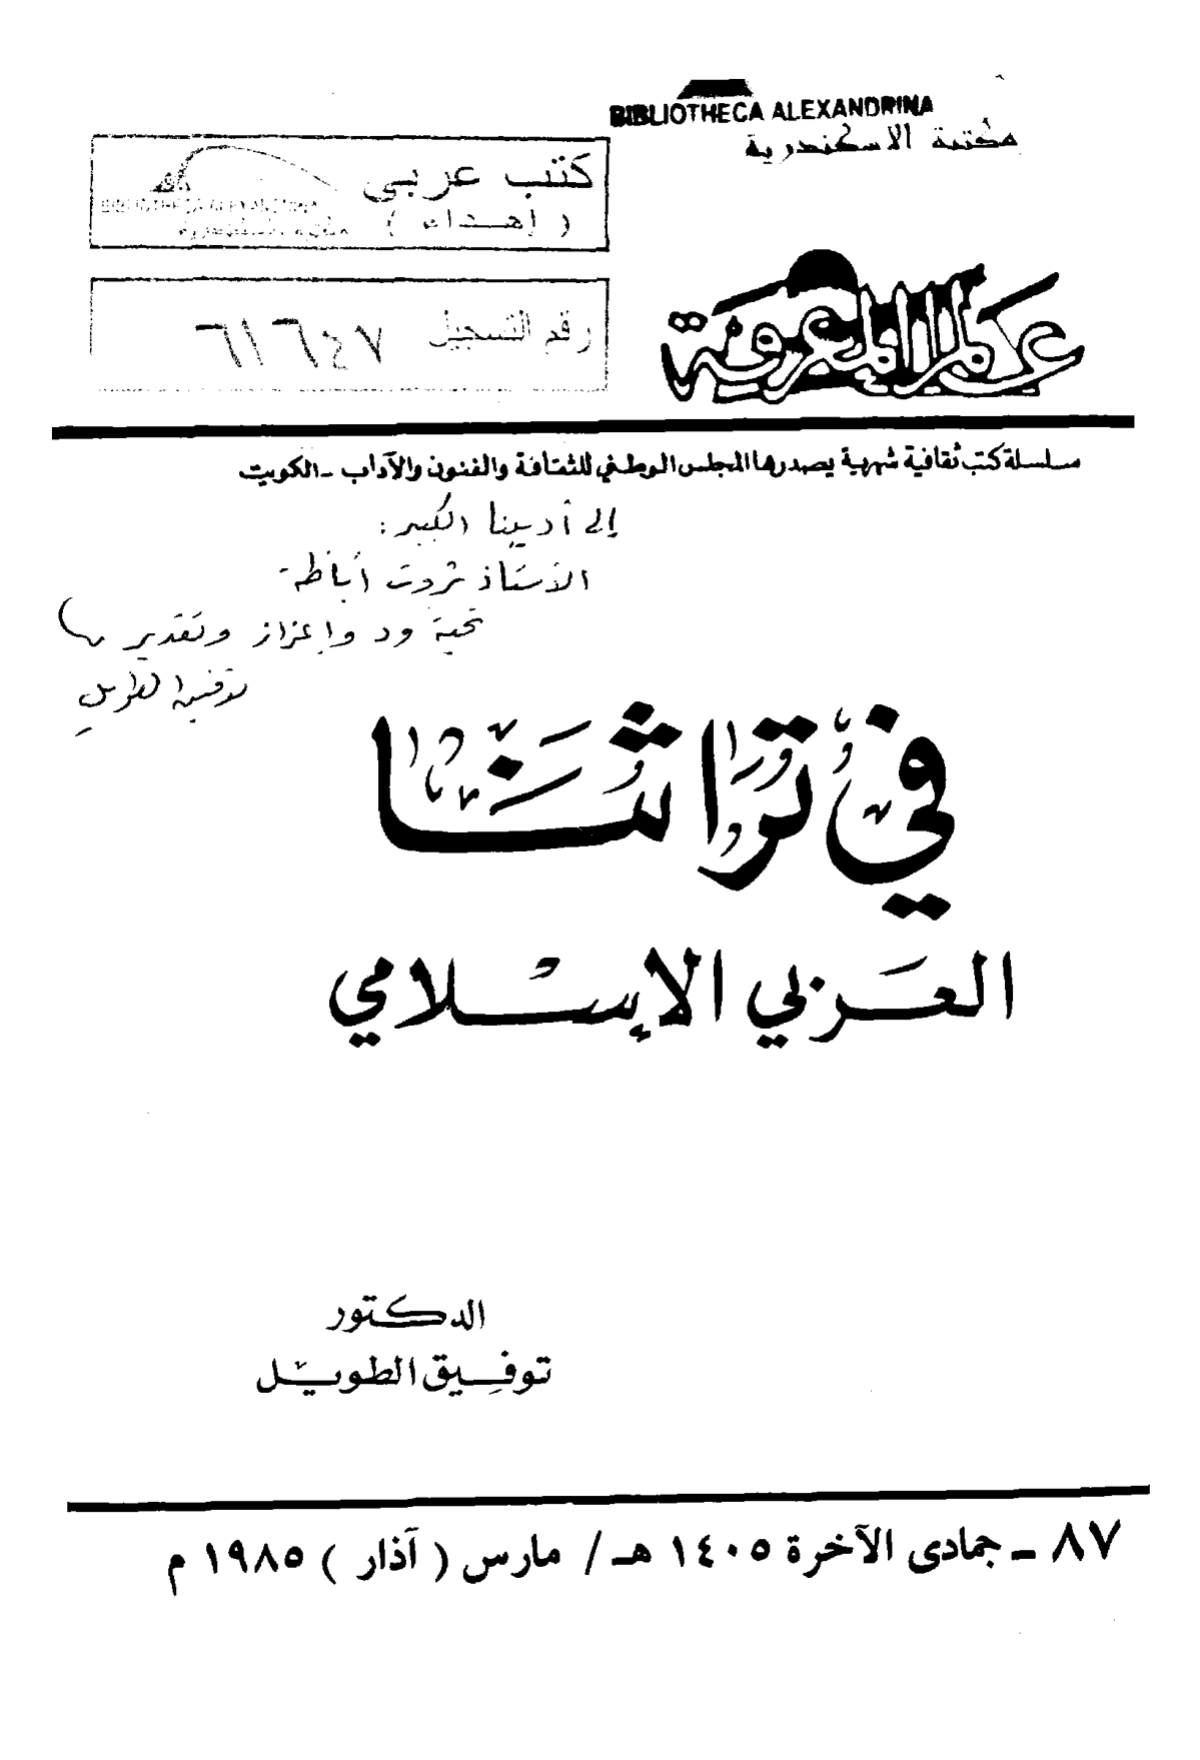 BIBLIOTHECA ALEXANDRINA
مكتبة الاسكندرية
كتب عربى
( إهداء )
BIBLIOTHECA ALEXANDRINA
مكتبة الاسكندرية
رقم التسجيل ٦١٦٤٧
عالم المعرفة
سلسلة كتب ثقافية شهرية يصدرها المجلس الوطني للثقافة والفنون والآداب - الكويت
إلى أديبنا الكبير :
الأستاذ ثروت أباظة
تحية ود وإعزاز وتقدير
توفيق الطويل
في تراثنا
العربي الإسلامي
الدكتور
توفيق الطويل
٨٧ - جمادى الآخرة ١٤٠٥ هـ / مارس ( آذار ) ١٩٨٥ م